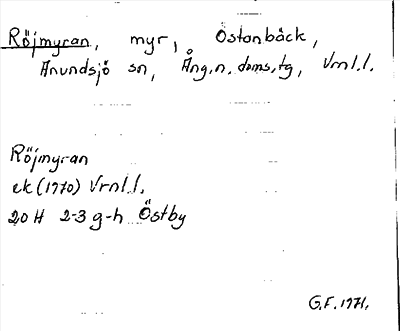 Röjmyran, myr, Östanbäck,
Anundsjö sn, Ång.n.doms.tg, Vrnl.l.
Röjmyran
ek (1970) Vrnl.l.
20 H 2-3 g-h Östby
G.F. 1971.